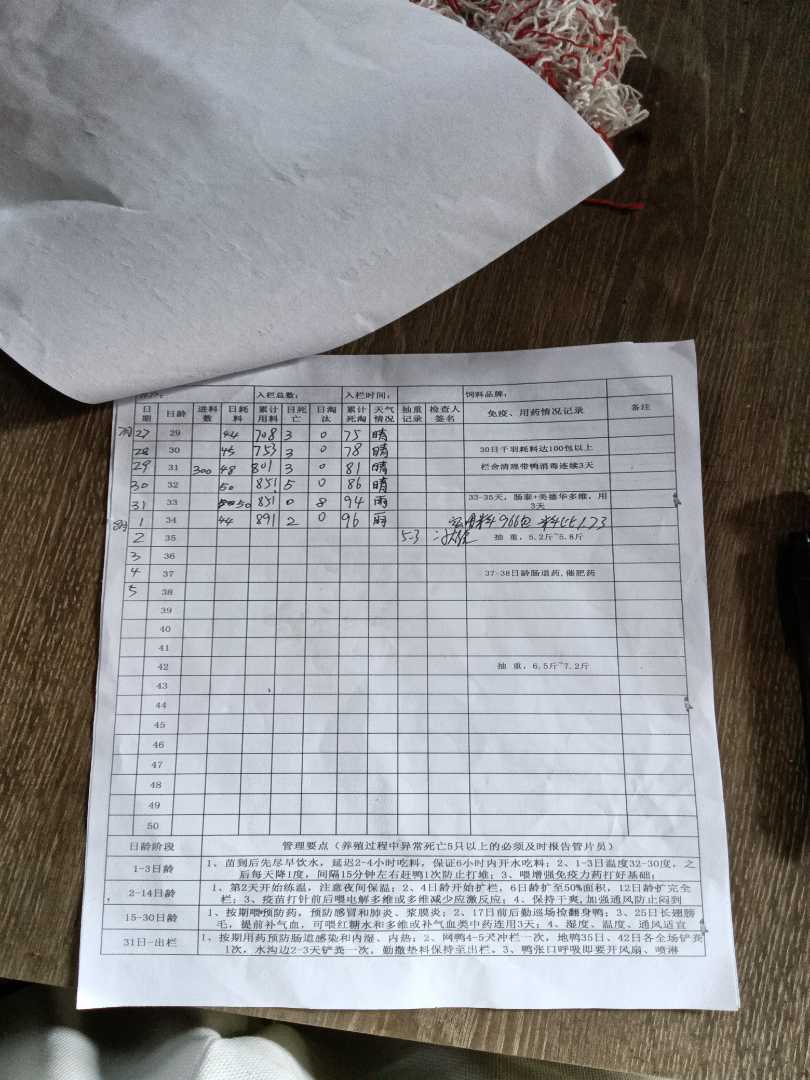 入栏总数： 入栏时间： 饲料品牌：
日期 日龄 进料数 日耗料 累计用料 日死亡 日淘汰 累计死淘 天气情况 抽重记录 检查人签名 免疫、用药情况记录 备注
27 29 44 708 3 0 75 晴
28 30 45 753 3 0 78 晴 30日千羽耗料达100包以上
29 31 300 48 801 3 0 81 晴 栏舍清理带鸭消毒连续3天
30 32 50 851 5 0 86 晴
31 33 50 851 0 8 94 雨 33-35天，肠泰+美德华多维，用3天
1 34 44 891 2 0 96 雨
2 35 5-3 抽 重，5.2斤~5.8斤
3 36
4 37 37-38日龄肠道药,催肥药
5 38
39
40
41
42 抽 重，6.5斤~7.2斤
43
44
45
46
47
48
49
50
日龄阶段 管理要点（养殖过程中异常死亡5只以上的必须及时报告管片员）
1-3日龄 1、苗到后先尽早饮水，延迟2-4小时吃料，保证6小时内开水吃料；2、1-3日温度32-30度，之
后每天降1度，间隔15分钟左右赶鸭1次防止打堆；3、喂增强免疫力药打好基础；
2-14日龄 1、第2天开始练温，注意夜间保温；2、4日龄开始扩栏，6日龄扩至50%面积，12日龄扩完全
栏；3、疫苗打针前后喂电解多维或多维减少应激反应；4、保持干爽,加强通风防止闷到
15-30日龄 1、按期喂预防药，预防感冒和肺炎、浆膜炎；2、17日前后勤巡场捡翻身鸭；3、25日长翅膀
毛，提前补气血，可喂红糖水和多维或补气血类中药连用3天；4、湿度、温度、通风适宜
31日-出栏 1、按期用药预防肠道感染和内湿、内热；2、网鸭4-5天冲栏一次，地鸭35日、42日各全场铲粪
1次，水沟边2-3天铲粪一次，勤撒垫料保持至出栏。3、鸭张口呼吸即要开风扇、喷淋